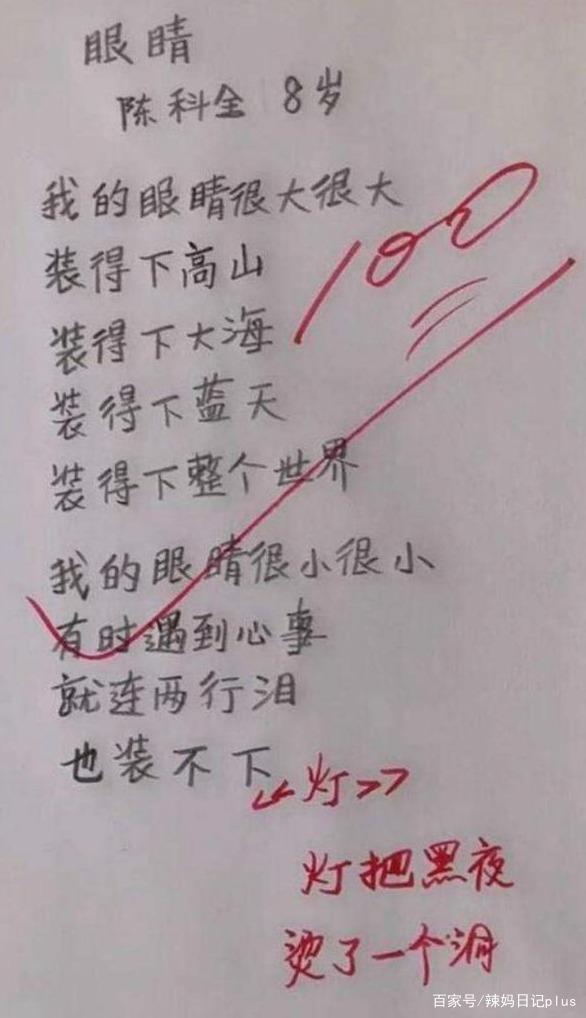 眼睛
陈科全 8岁
我的眼睛很大很大
装得下高山
装得下大海
装得下蓝天
装得下整个世界
我的眼睛很小很小
有时遇到心事
就连两行泪
也装不下
100
《灯》
灯把黑夜
烫了一个洞
百家号/辣妈日记plus